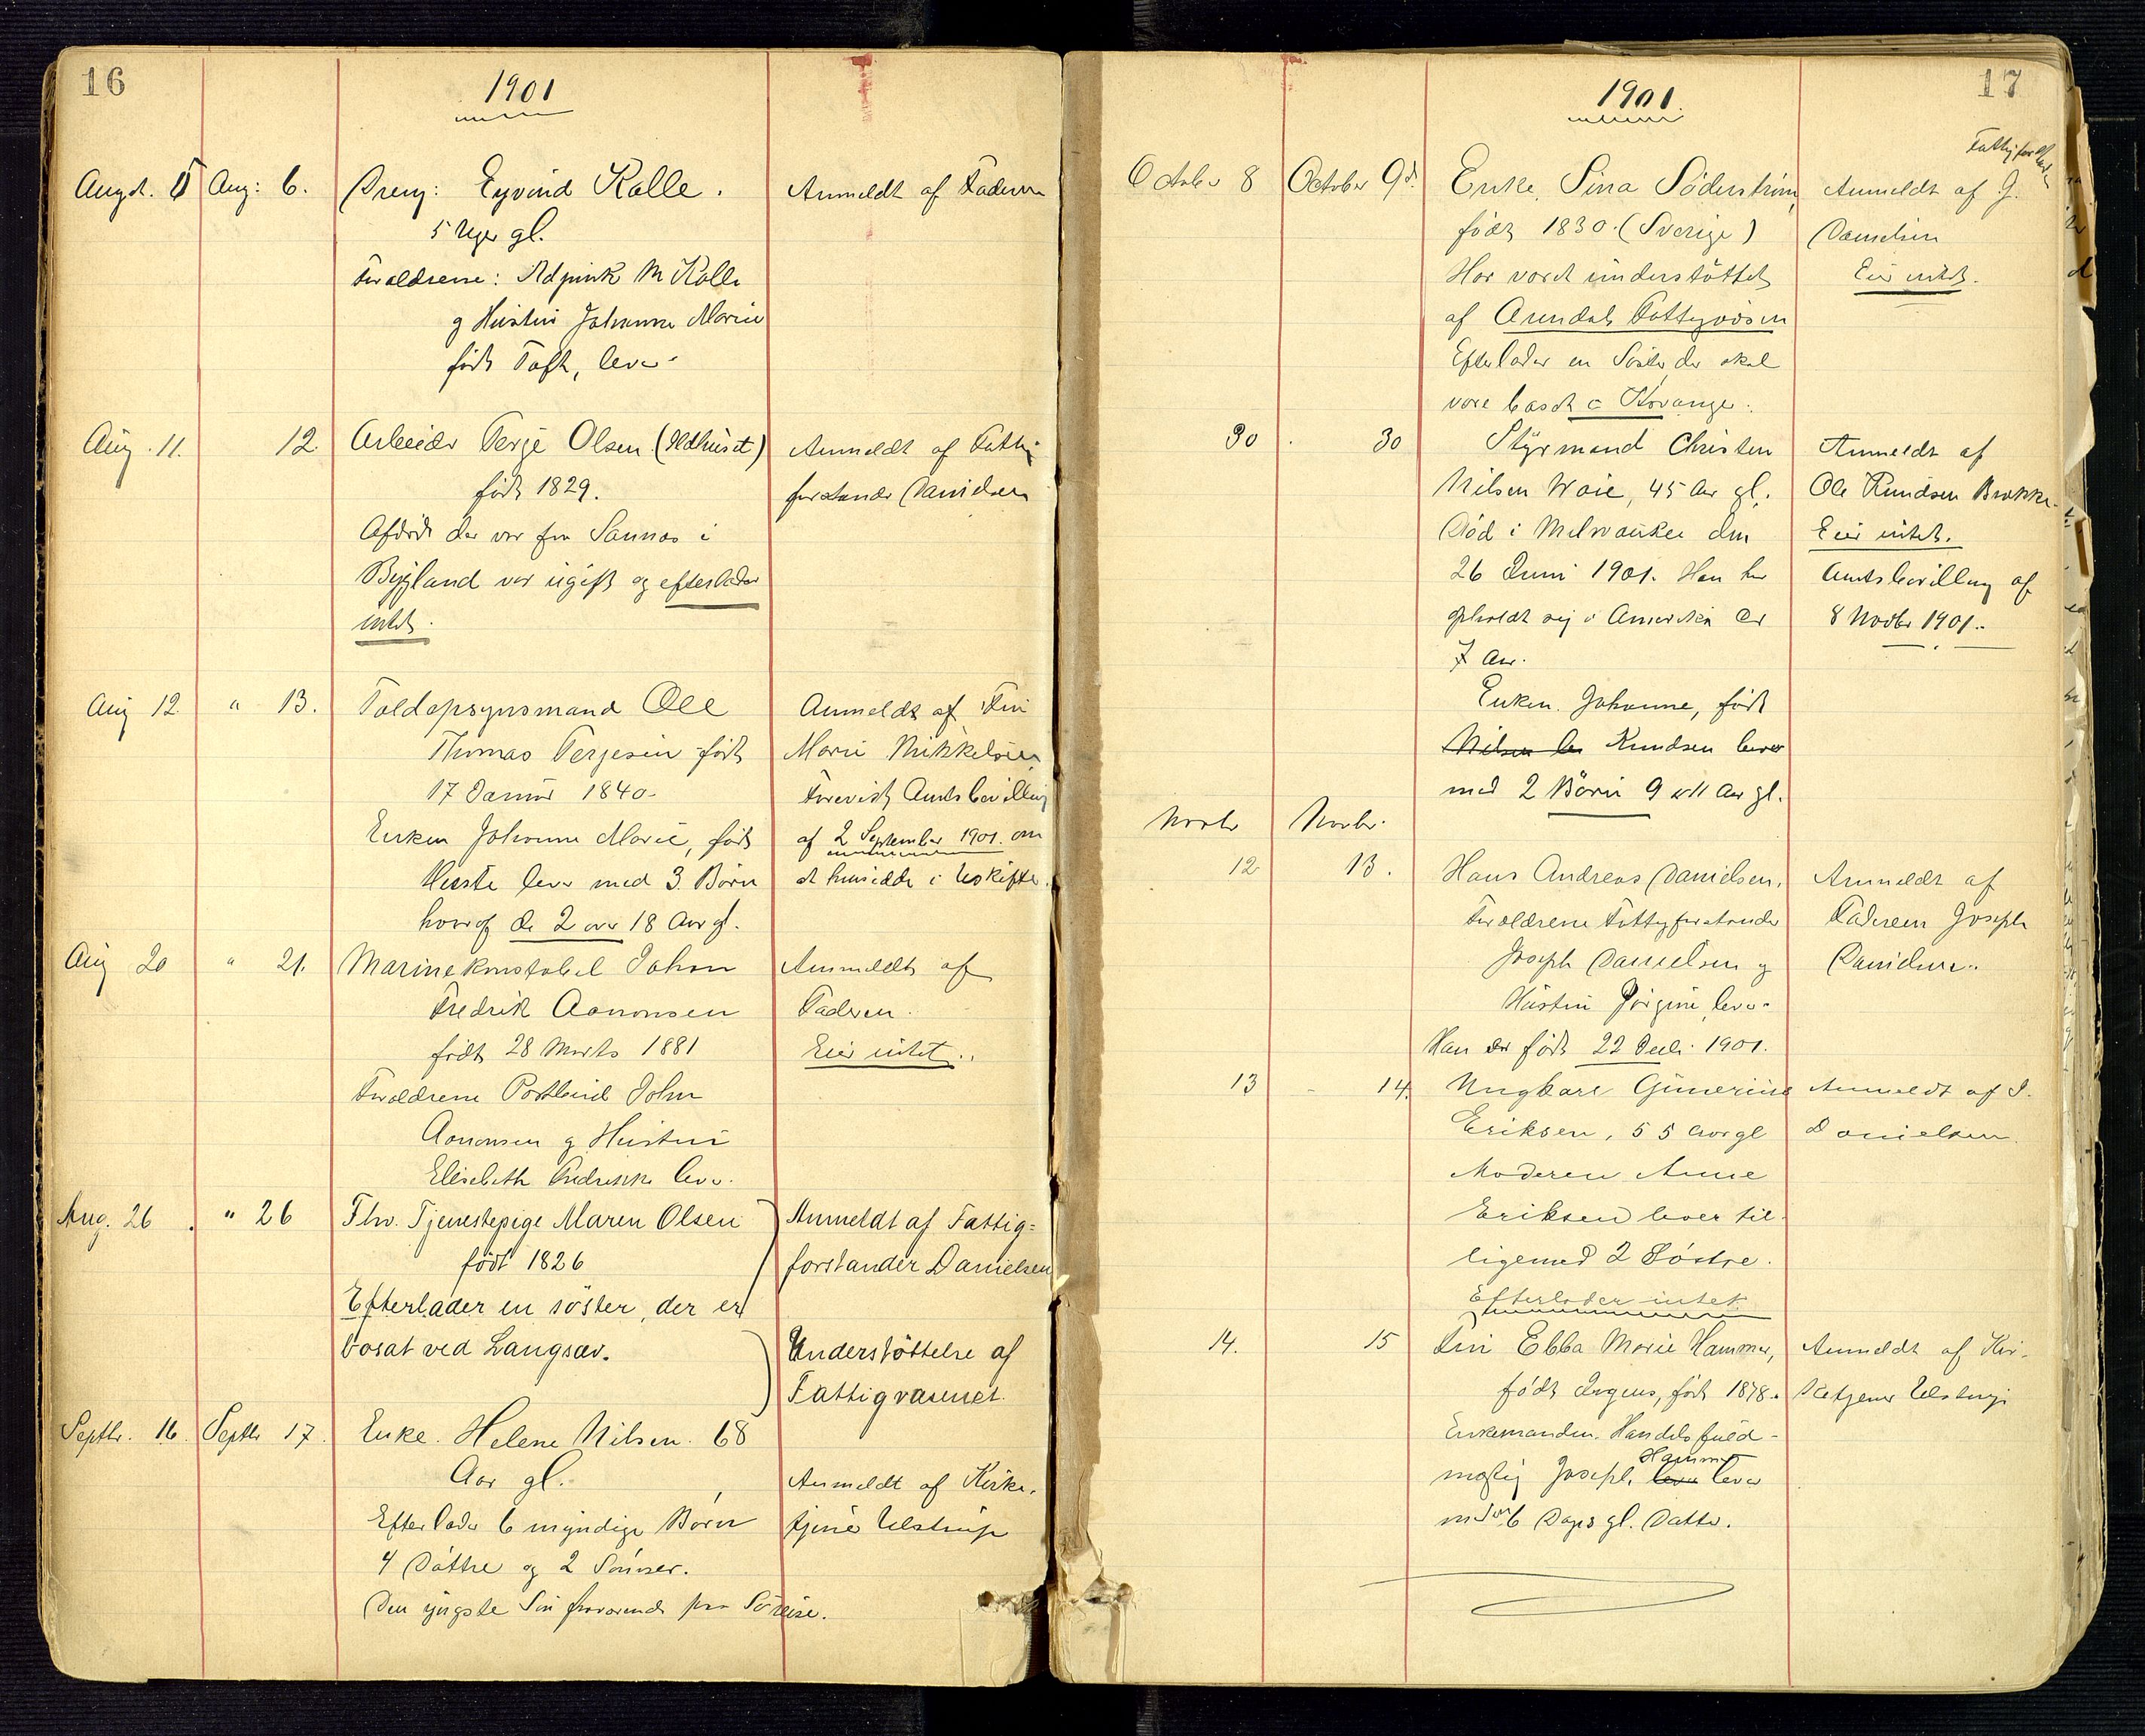 16
1901
Augst. 5 Aug: 6. Dreng: Eyvind Kalle. Anmeldt af Faderen
5 Uger gl.
Forældrene: Adjunk M Kalle
og Hustru Johanne Marie
født Toft, lever
Aug. 11. 12. Arbeider Terje Olsen (Ildhuset) Anmeldt af Fattig
født 1829. forstander Danielsen
Afdøde der var fra Sannæs i
Bygland var ugift og efterlader
intet.
Aug 12. " 13. Toldopsynsmand Ole Anmeldt af Fru
Thomas Terjesen født Marie Mikkelsen
17 Januar 1840. Forevist Amtsbevilling
Enken Johanne Marie, født af 2 September 1901. om
Heiste lever med 3 Børn at hensidde i Uskifte.
hvoraf de 2 over 18 Aar gl.
Aug 20 " 21. Marinekonstabel Johan Anmeldt af
Fredrik Aanonsen Faderen.
født 28 Marts 1881 Eier intet.
Forældrene Postbud John
Aanonsen og Hustru
Elisebeth Fredrikke lever.
Aug. 26. " 26 Fhv. Tjenestepige Maren Olsen Anmeldt af Fattig=
født 1826 forstander Danielsen
Efterlader en söster, der er
bosat ved Langsæv. Understöttelse af
Fattigvæsenet.
Septbr. 16. Septbr 17. Enke. Helene Nilsen. 68
Aar gl. Anmeldt af Kirke-
Efterlader 6 myndige Børn tjener Ulstrup
4 Døttre og 2 Sønner.
Den yngste Søn fraværende paa Sóreise.
17
1901.
October 8 October 9d. Enke. Sina Söderstrøm, Anmeldt af J. Fattigforstander
født 1830. (Sverige) Danielsen
Har været understöttet Eier intet.
af Arendals Fattigvæsen
Efterlader en Søster der skal
være bosat i
30 30 Styrmand Christen Anmeldt af
Nilsen Waie, 45 Aar gl. Ole Knudsen Brokke.
Død i Milwaukee den Eier intet.
26 Juni 1901. Han har Amtsbevilling af
opholdt sig i Amerika ca 8 Novbr 1901.
7 Aar.
Enken. Johanne, født
Nilsen lev Knudsen lever
med 2 Børn 9 & 11 Aar gl.
Novbr Novbr.
12 13. Hans Andreas Danielsen. Anmeldt af
Forældrene Fattigforstander Faderen Joseph
Joseph Danielsen og Danielsen.
Hustru Jørgine, lever.
Han er født 22 Juli 1901.
13 - 14. Ungkarl Gunerius Anmeldt af J.
Eriksen, 55 Aar gl Danielsen.
Moderen Anne
Eriksen lever til-
ligemed 2 Søstre.
Efterlader intet.
14. 15 Fru Ebba Marie Hammer, Anmeldt af Kir-
født Irgens, født 1878. ketjener Ulstrup
Enkemanden. Handelsfuld-
mægtig Joseph lever Hammer lever
med en 6 Dags gl. Datter.